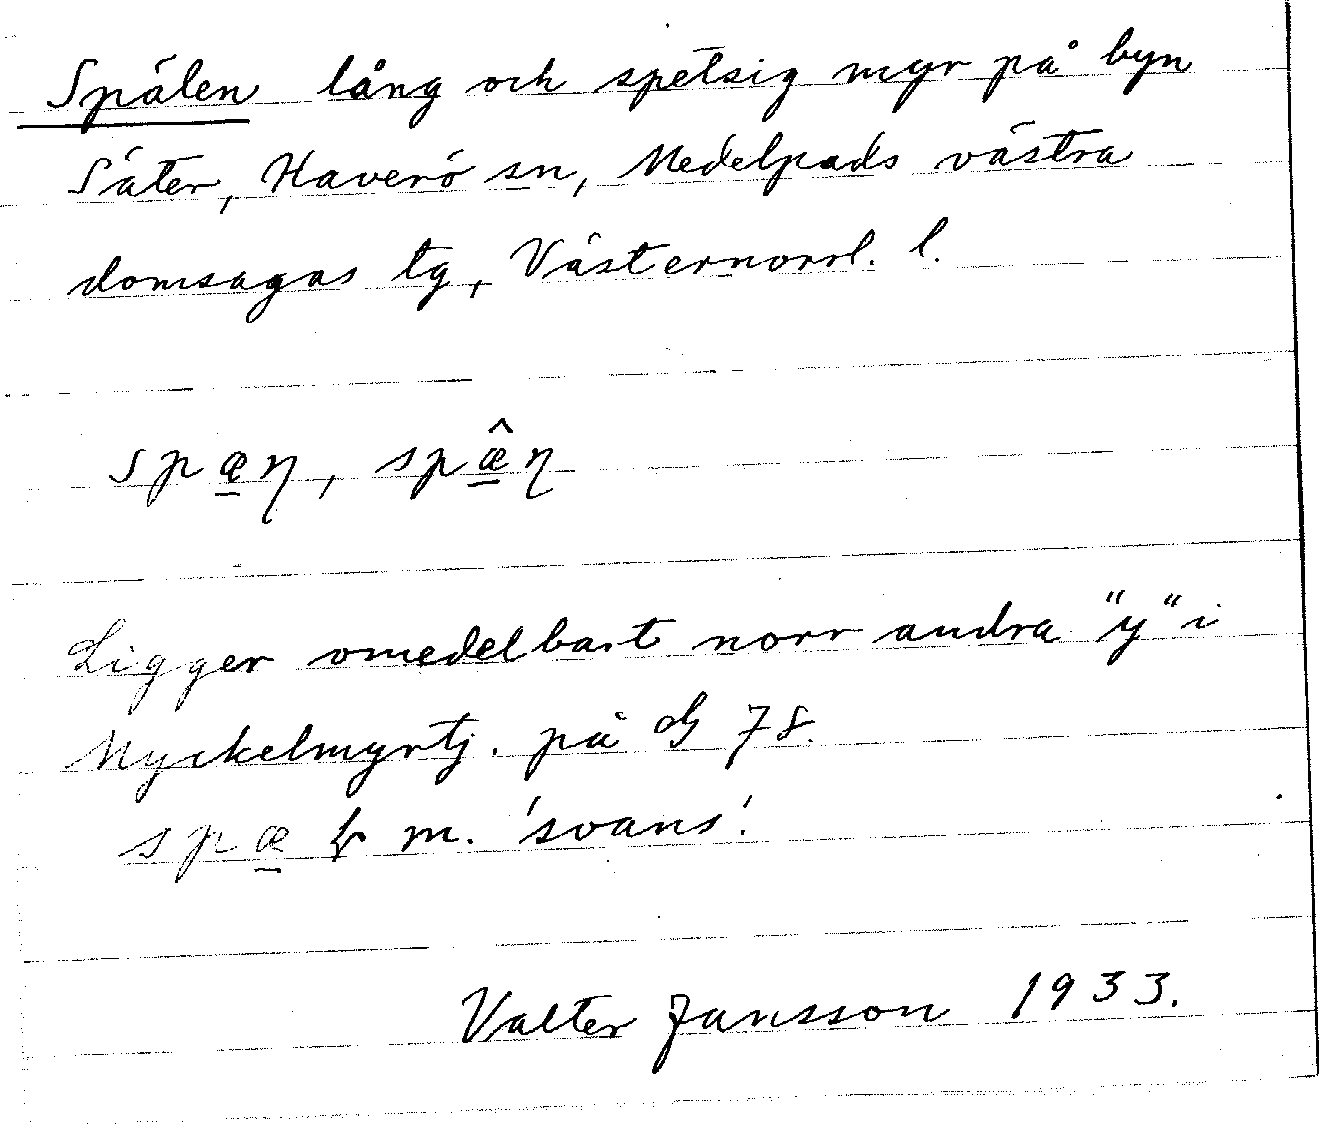 Spälen lång och spetsig myr på byn
Säter, Haverö sn, Medelpads västra
domsagas tg, Västernorrl. l.
spæ̱η, spæ̱̂η
Ligger omedelbart norr andra "y" i
Nyckelmyrtj. på G 78.
spæ̱ m. 'svans'.
Valter Jansson 1933.